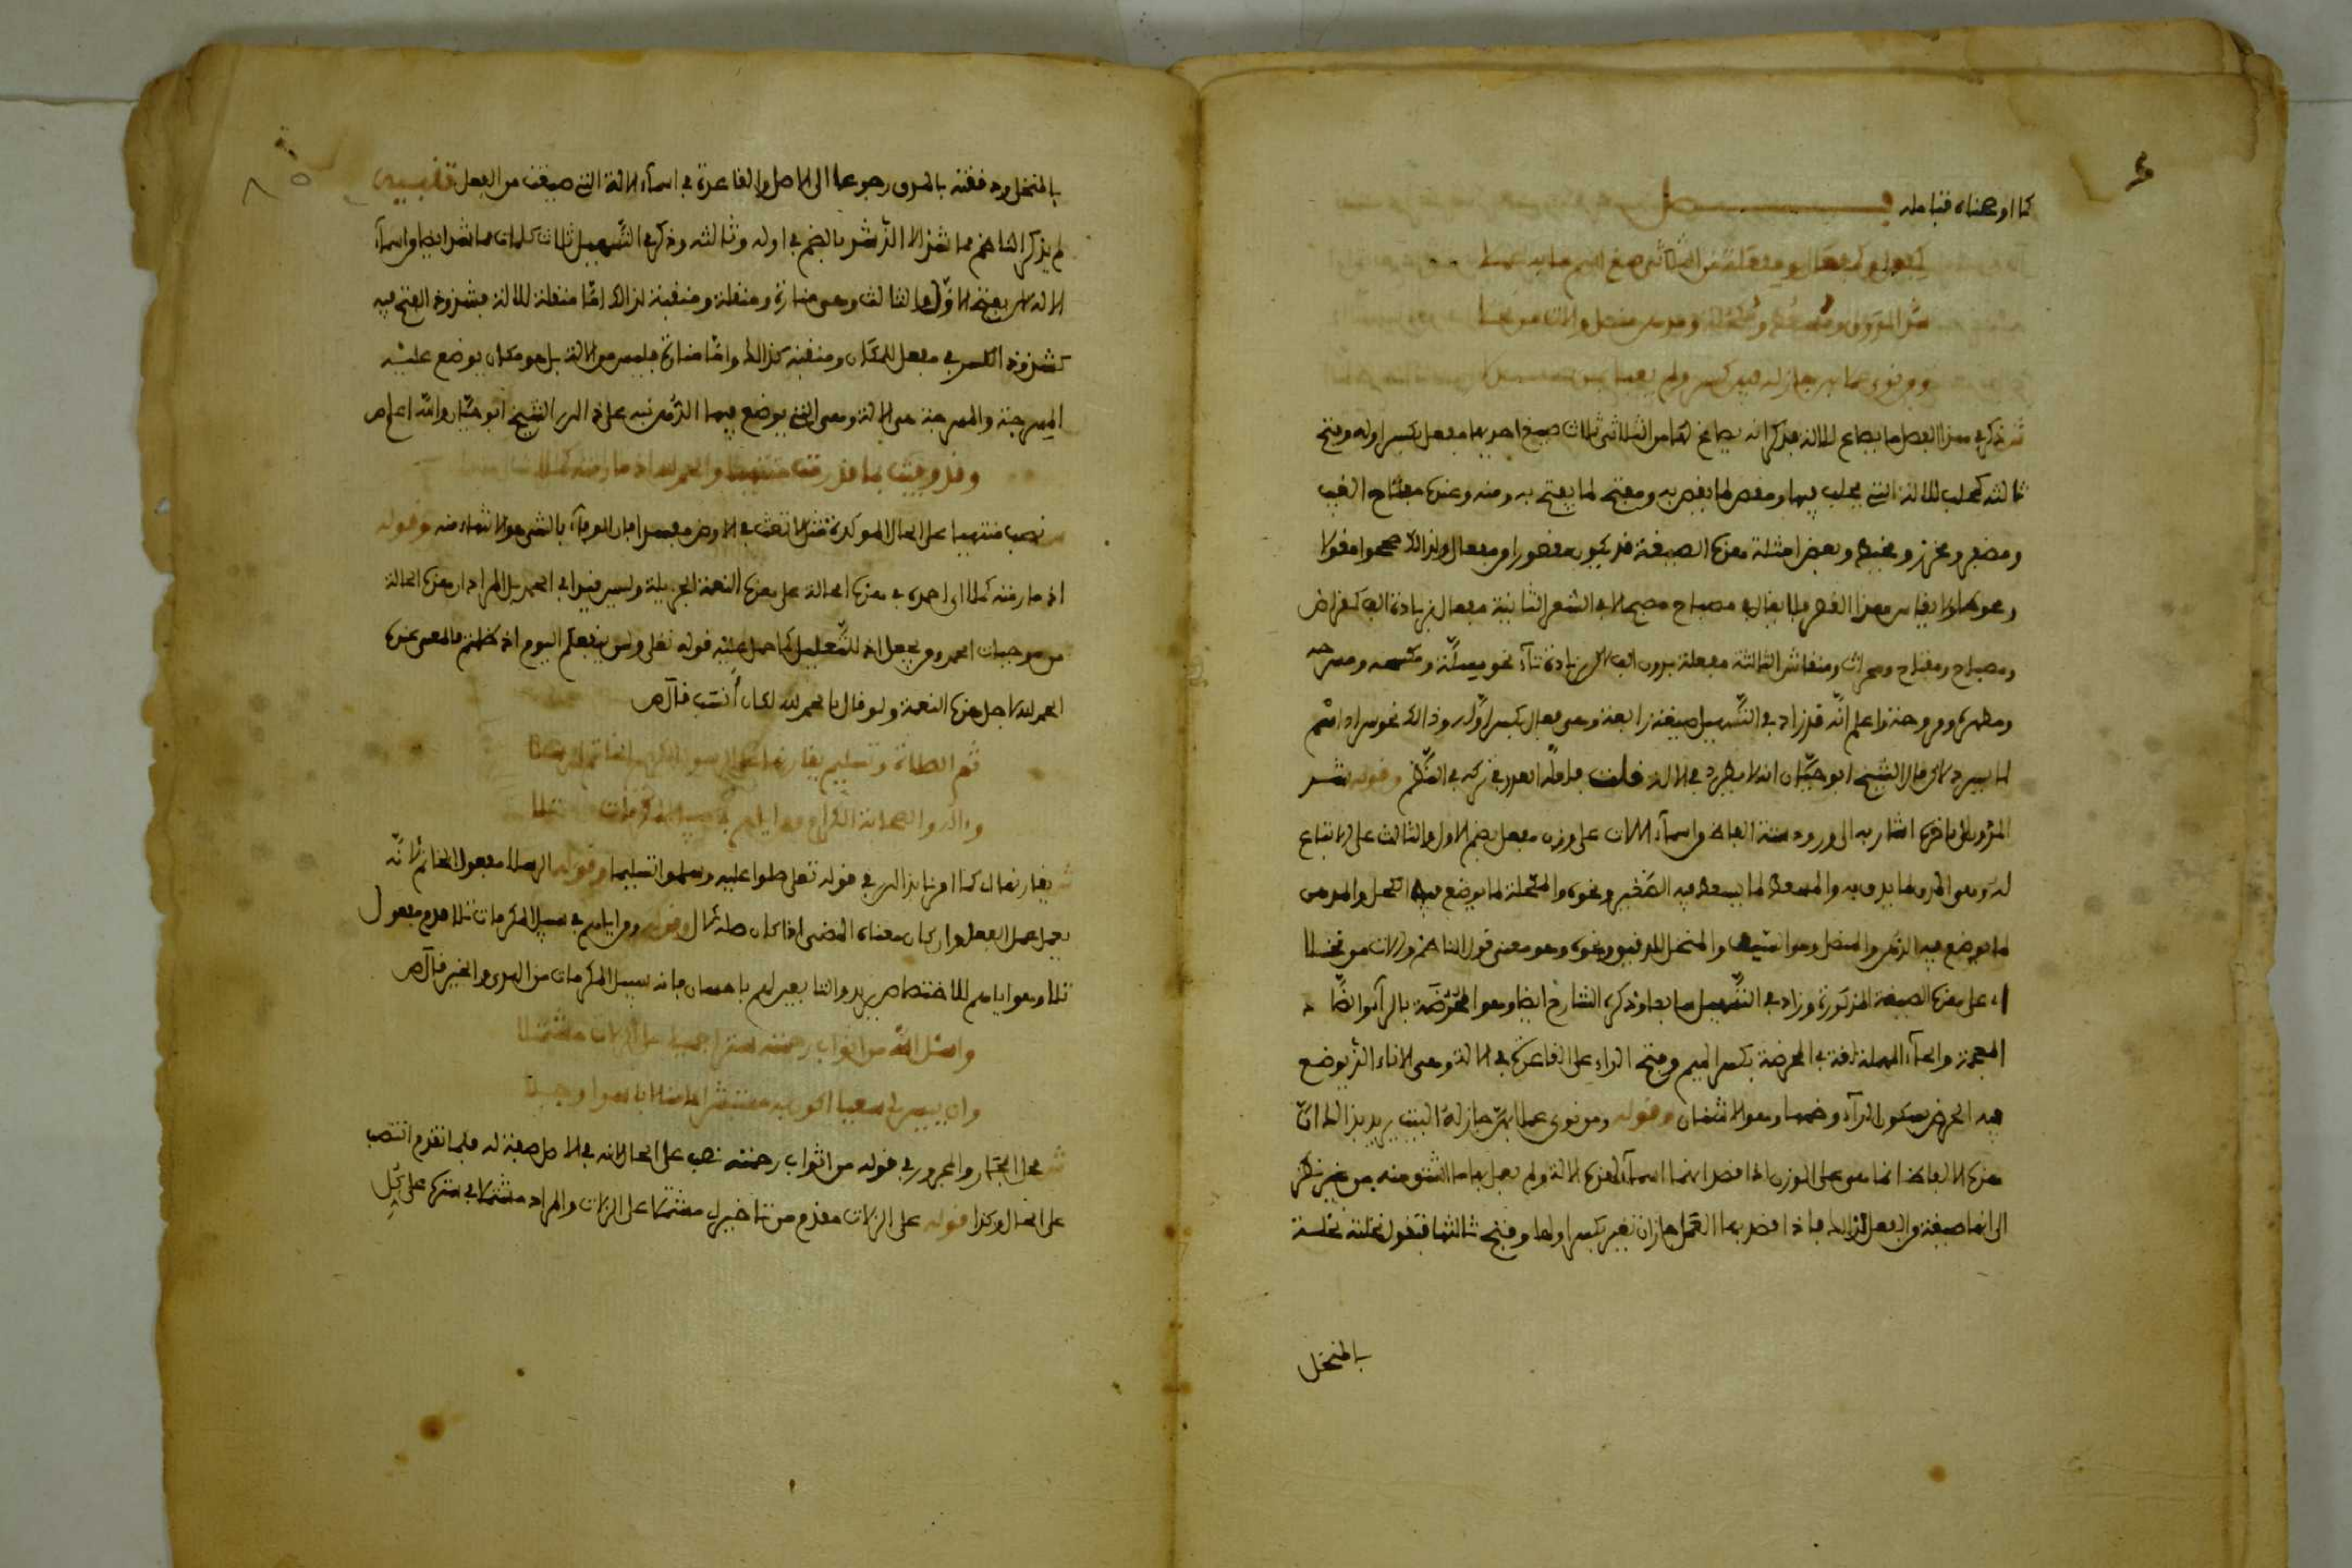 كما اوضحناه فتامله فصل
كمفعل وكمفعال ومفعلة من الثلاثي صغ اسم ما به عملا
شذ المدق ومسعط ومكحلة ومدهن منصل والات من نخلا
ومن نوى عملا بهن جاز له فيهن كسر ولم يعبأ بمن عذلا
ش ذكر في هذا الفصل ما يصاغ للالة فذكر انه يصاغ لها من الثلاثي ثلاث صيغ احدها مفعل بكسر اوله وفتح
ثالثه كمحلب للالة التي يحلب فيها ومقص لما يقص به ومفتح لما يفتح به ومنه وعنده مفتاح الغيب
ونحوها ولا يقاس هذا القصر فلا يقال في مصباح مصبح الا في الشعر الثانية مفعال بزيادة الف كمقراض
ومصباح ومفتاح ومحراث ومنقاش الثالثة مفعلة بدون الف بل بزيادة تاء نحو ومكسحة ومسرجة
ومطهرة ومروحة واعلم انه قد زاد في التسهيل صيغة رابعة وهي فعال بكسر اوله وذالك نحو سراد اسم
لما يسرد به قال الشيخ ابو حيان انه لا يطرد في الالة قلت فلعله العذر في تركه في النظم وقوله شذ
المدق الى اخره اشار به الى ورود ستة الفاظ من اسماء الالات على وزن مفعل بضم الاول والثالث على الاتباع
له وهو المدق لما يدق به والمسعط لما يسعط فيه الصغير ونحوه والمكحلة لما يوضع فيها الكحل والمدهن
لما يوضع فيه الدهن والمنصل وهو السيف والمنخل للدقيق ونحوه وهو معنى قول الناظم والات من نخلا
اي على هذه الصيغة المذكورة وزاد في التسهيل سابعا وذكره الشارح ايضا وهو المحرضة بالراء والضاد
المعجمة والحاء المهملة لغة في المحرضة بكسر الميم وفتح الراء على القاعدة في الالة وهي الاناء الذي يوضع
فيه الحرض بسكون الراء وضمها وهو الاشنان وقوله ومن نوى عملا بهن جاز له البيت يريد بذالك ان
هذه الالفاظ انما هي على الوزن اذا قصد انها اسماء لهذه الالة ولم يعمل بها ما اشتق منه من غير نظر
الى انها صيغة من الفعل لذالك فاذا قصد بها العمل جاز ان تغير بكسر اولها وفتح ثالثها فتقول نخلته نخلة
بالمنخل
بالمنخل ودققته بالمدق رجوعا الى الاصل والقاعدة في اسماء الالة التي صيغت من الفعل تنبيه
لم يذكر الناظم مما شذ الا الذي شذ بالضم في اوله وثالثه وذكر في التسهيل ثلاث كلمات مما شذ ايضا من اسماء
الالة لاكن بفتح الاول والثالث وهي منارة ومنقلة ومنقبة لذالك اما منقلة للالة فشذوذ الفتح فيه
كشذوذ الكسر في مفعل للمكان ومنقبة كذالك واما منارة فليس من الالة بل هو مكان يوضع عليه
المسرجة والمسرجة هي الالة وهي التي يوضع فيها الدهن نبه على ذالك الشيخ ابو حيان والله اعلم ص
وقد وفيت بما قد رمت منتهيا والحمد لله اذ ما رمته كملا
ش نصب منتهيا على الحال المؤكدة مثل لا تعث في الارض مفسدا فان الوفاء بالشيء هو الانتهاء منه وقوله
اذ ما رمته كملا اي احمده في هذه الحالة على هذه النعمة الجزيلة وليس قيدا في الحمد بل المراد ان هذه الحالة
من موجبات الحمد ومن يجعل اذ للتعليل كما حمل عليه قوله تعلى ولن ينفعكم اليوم اذ ظلمتم فالمعنى عنده
الحمد لله لاجل هذه النعمة ولو قال بالحمد لله لكان انسب قال ص
ثم الصلاة وتسليم يقارنها على الرسول الكريم الخاتم الرسلا
واله والصحابة الكرام ومن اياهم في سبيل المكرمات تلا
ش يقارنها كما امرنا بذالك في قوله تعلى صلوا عليه وسلموا تسليما وقوله الرسلا مفعول الخاتم لانه
يعمل عمل الفعل وان كان معناه المضي اذا كان صلة لال وقوله ومن اياهم في سبيل المكرمات تلا قدم مفعول
تلا وهو اياهم للاختصاص يريد والتابعين لهم باحسان فانه سبيل المكرمات من الهدى والخير قال ص
واسئل الله من اثواب رحمته سترا جميلا على الزلات مشتملا
وان ييسر لي سعيا اكون به مستبشرا امنا لا باسرا وجلا
ش محل الجار والمجرور في قوله من اثواب رحمته نصب على الحال لانه في الاصل صفة له فلما تقدم انتصب
على الحال وكذا قوله على الزلات مقدم من تاخير اي مشتملا على الزلات والمراد مشتملا في سترها على كل